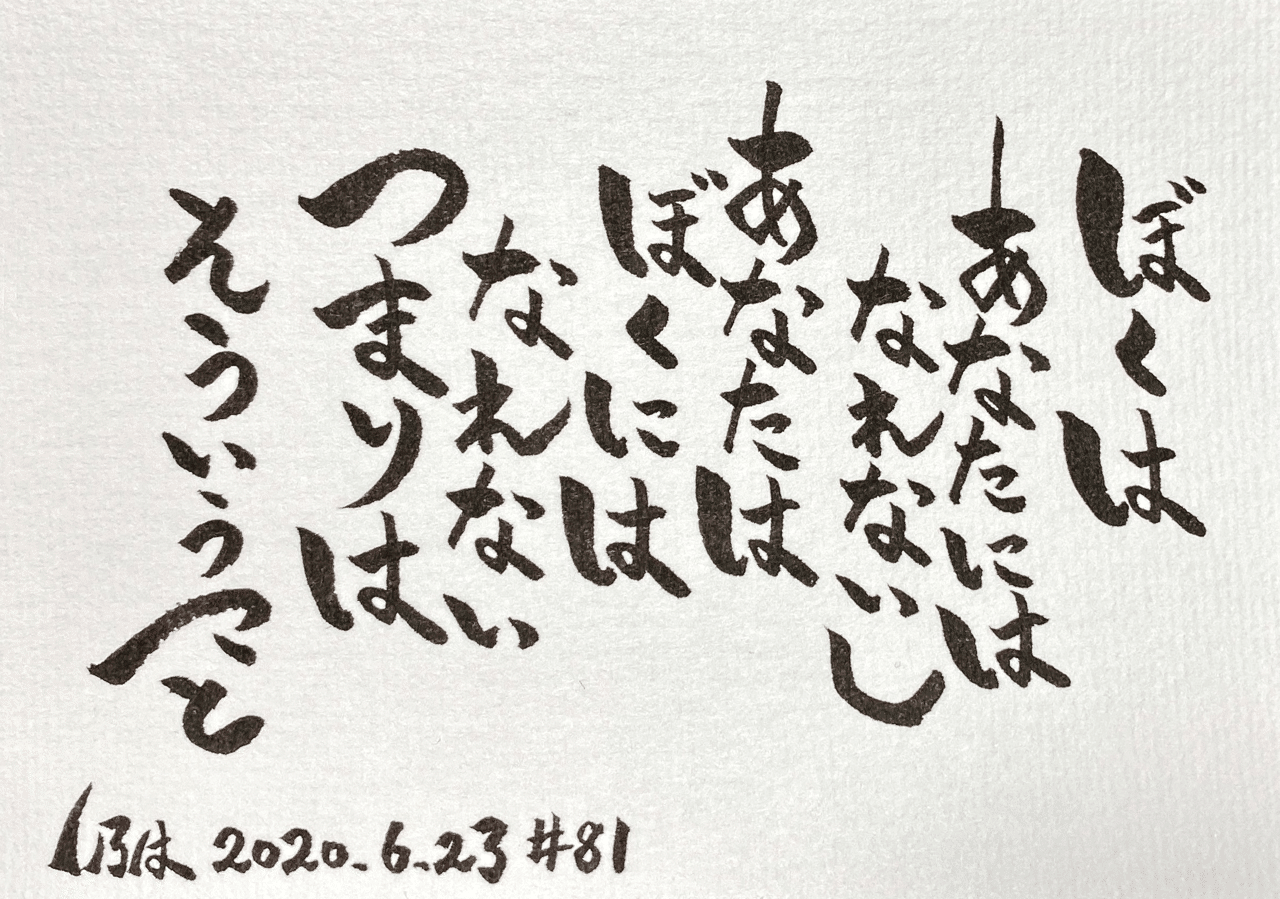 ぼくは
あなたには
なれないし
あなたは
ぼくには
なれない
つまりは
そういうこと
2020.6.23 #81